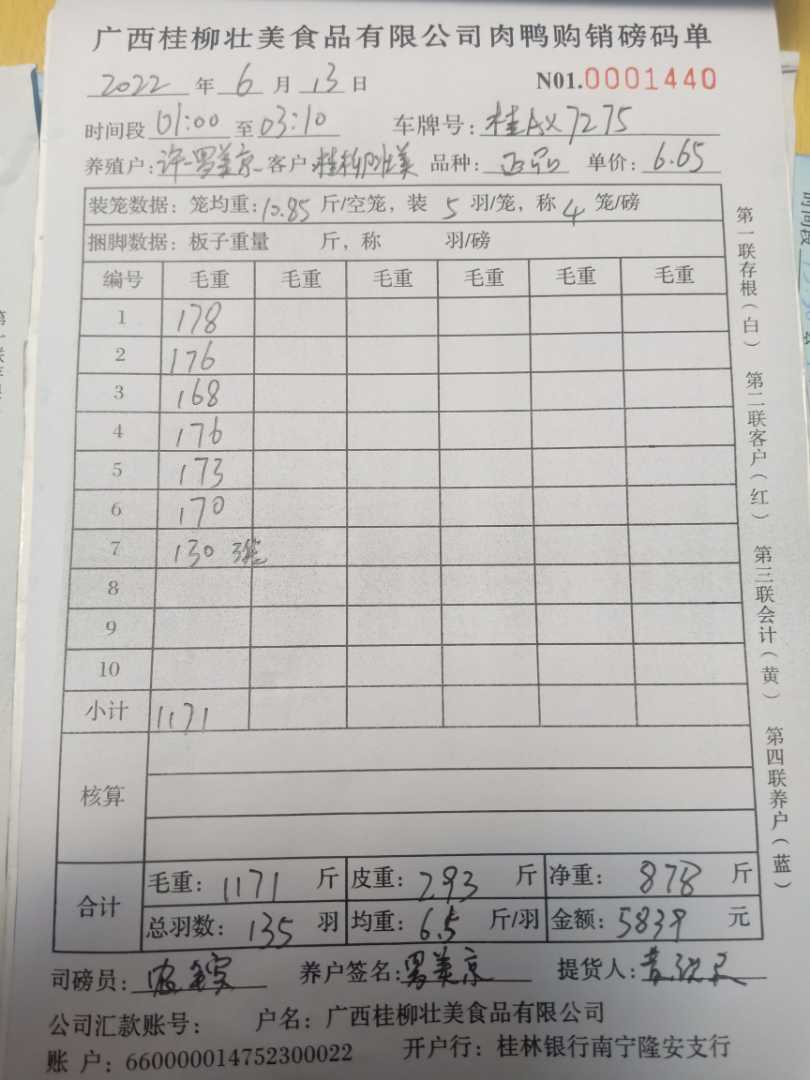 广西桂柳壮美食品有限公司肉鸭购销磅码单
2022 年 6 月 13 日 N01.0001440
时间段 01:00 至 03:10 车牌号: 桂AX7275
养殖户: 许-罗美京 客户: 桂柳壮美 品种: 正品 单价: 6.65
装笼数据: 笼均重: 10.85 斤/空笼, 装 5 羽/笼, 称 4 笼/磅
捆脚数据: 板子重量 斤, 称 羽/磅
编号 毛重 毛重 毛重 毛重 毛重 毛重
1 178
2 176
3 168
4 176
5 173
6 170
7 130 3笼
8
9
10
小计 1171
核算
合计 毛重: 1171 斤 皮重: 293 斤 净重: 878 斤
总羽数: 135 羽 均重: 6.5 斤/羽 金额: 5839 元
司磅员: 养户签名: 罗美京 提货人:
公司汇款账号: 户名: 广西桂柳壮美食品有限公司
账 户: 660000014752300022 开户行: 桂林银行南宁隆安支行
第一联存根(白) 第二联客户(红) 第三联会计(黄) 第四联养户(蓝)